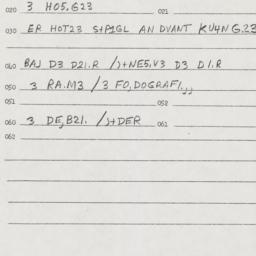 020 3 HO5,G23 021
030 ER HOT23 S+P1GL AN DVANT KU4NG.23
040 BAJ D3 D21.R /J+NE5.V3 D3 D1.R
050 3 RA.M3 / 3 FO,DOGRAFI.,,
051 052
060 3 DE,B21. /J+DER 061
062